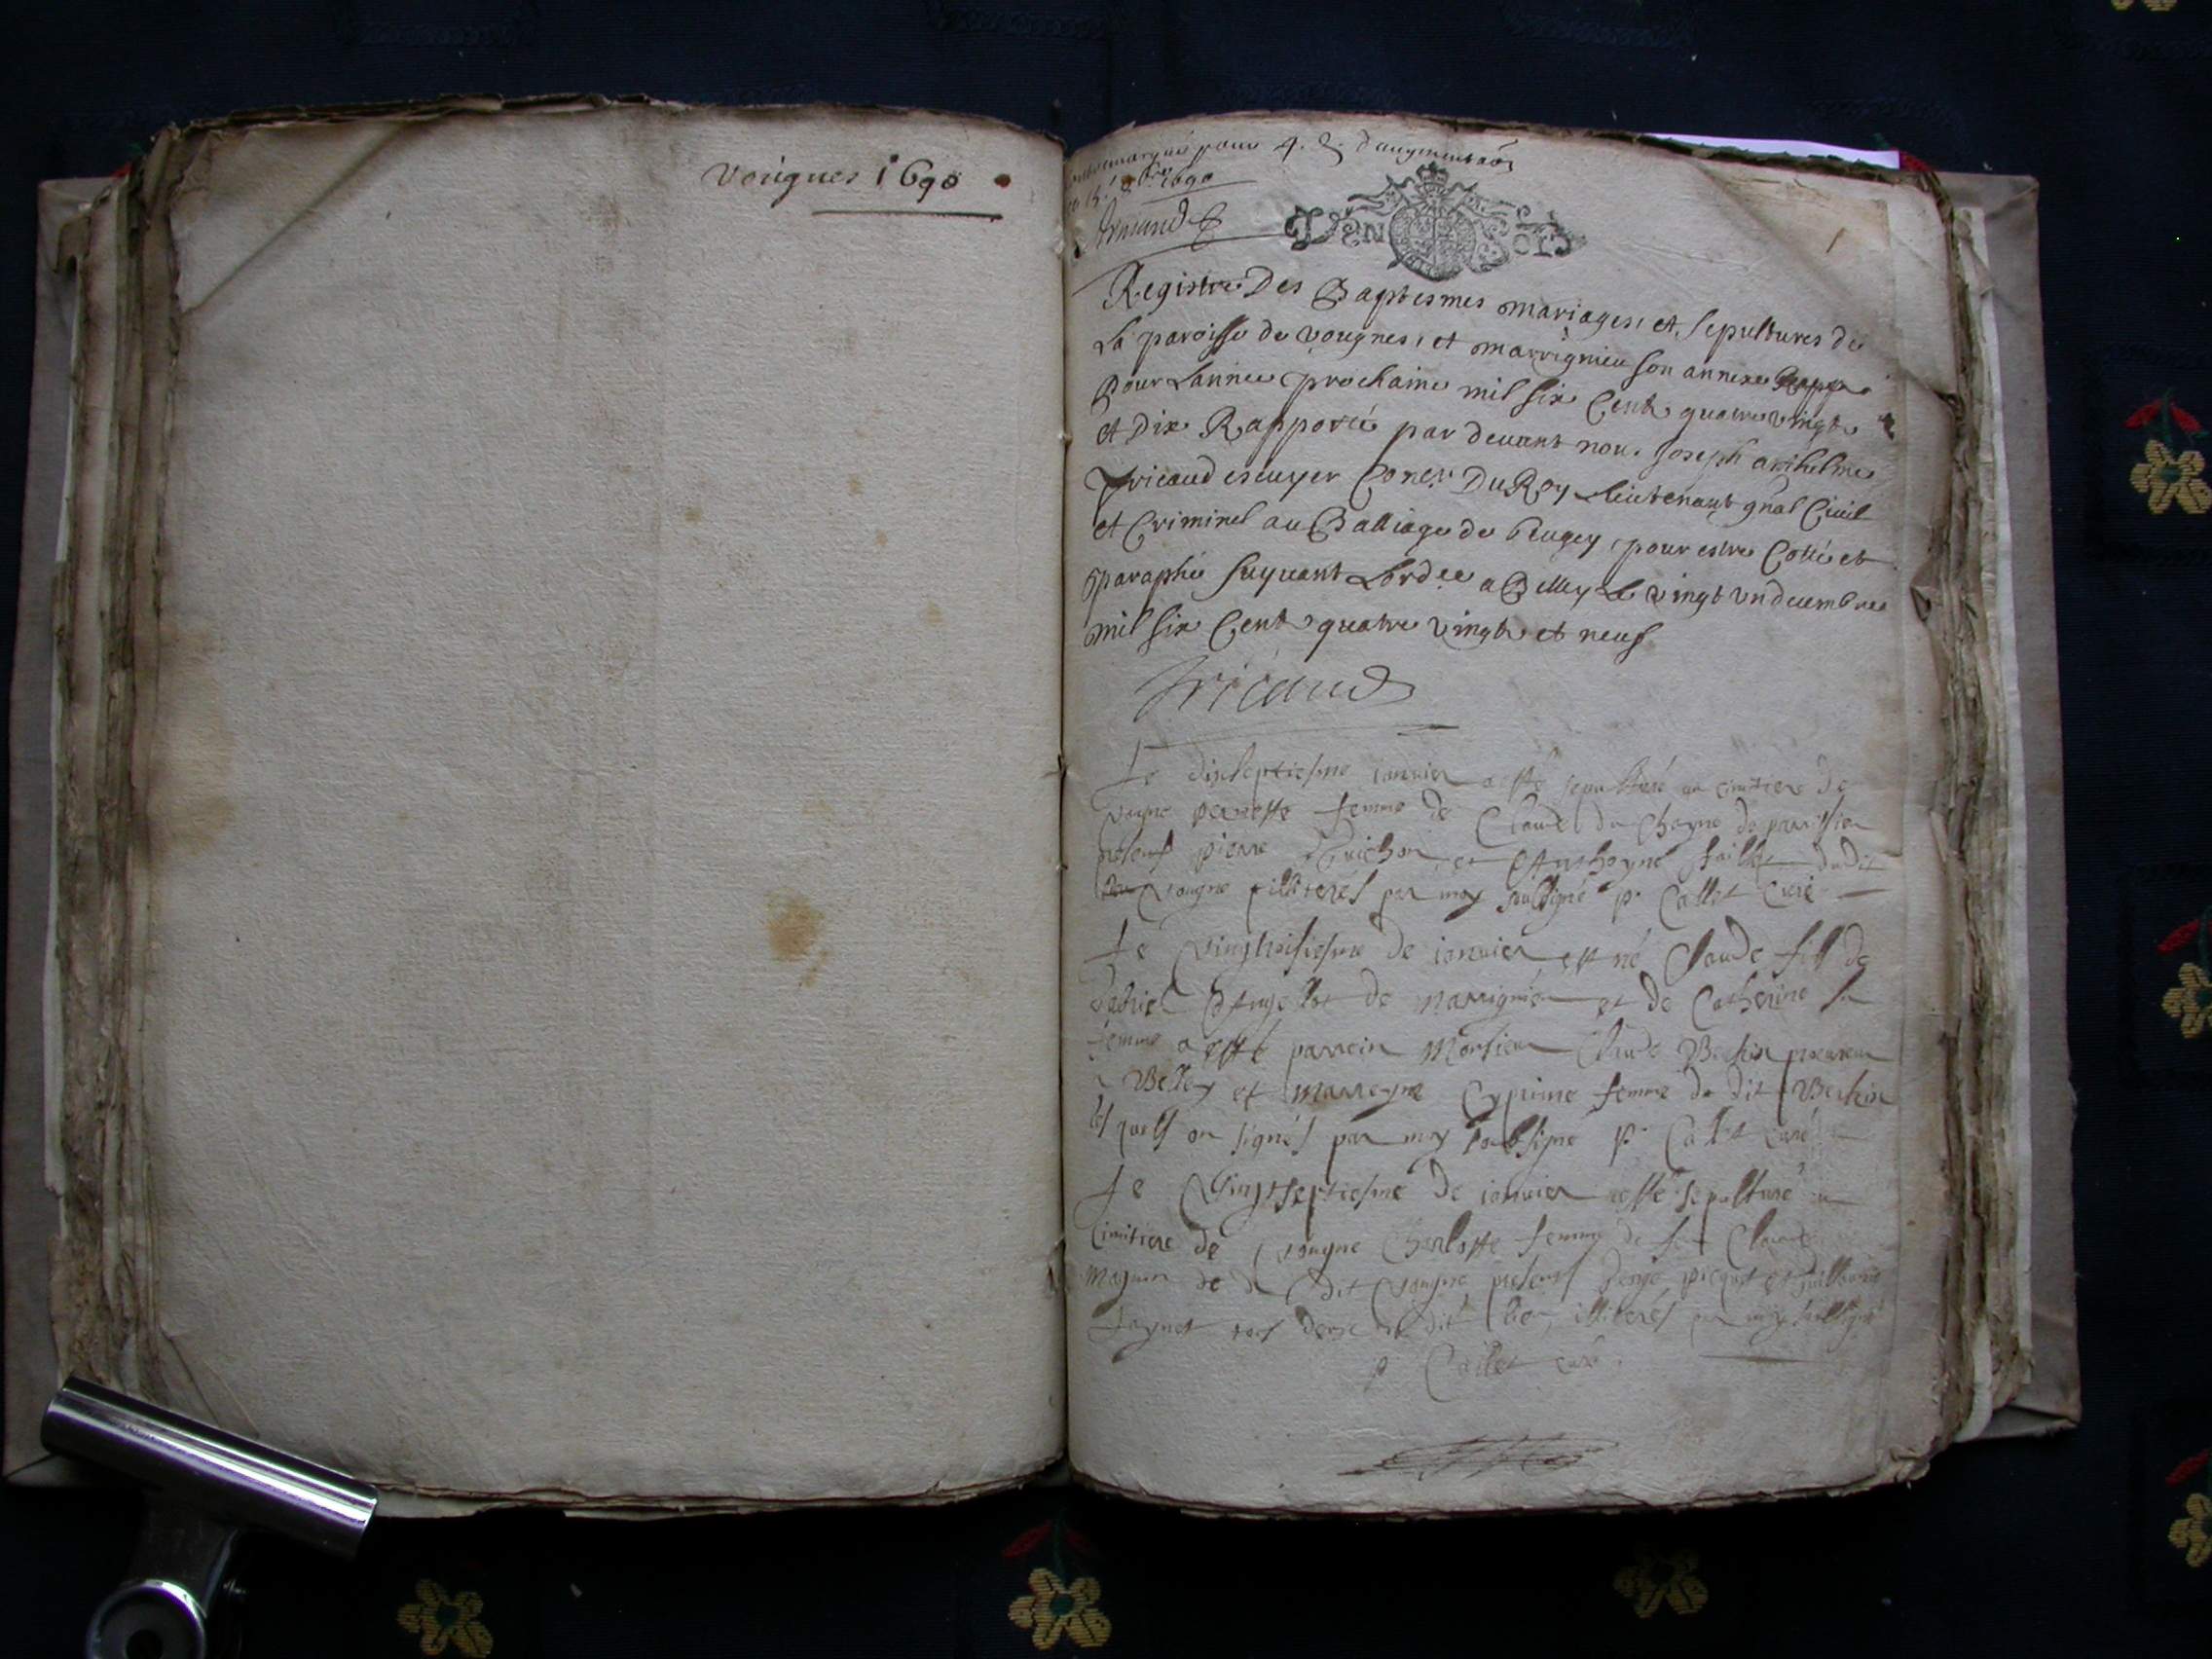 Vougnes 1690
pour 4. d. d'augmentaõn
1690
Armand
GEN
1
Registre Des Baptesmes mariages, et, sepultures de
La paroisse de vougnes, et marrignieu son annexe
Pour Lannee prochaine mil six Cent quatre vingt
et Dix Rapporté par devant nous Joseph anthelme
Fricaud escuyer Coner Du Roy Lieutenant gnal Civil
et Criminel au Balliage de beugey, pour estre Cotté et
paraphé suyvant Lordce a Belley Le vingt un decembre
mil six Cent quatre vingt et neuf
Fricaud
Le dixseptiesme ianvier a esté sepulturé au cimitiere de
vogne pernette femme de Claude du Chayne de
presens pierre et Anthoyne dudit
vougne illiterés par moy soubsigné p. Callet Curé
Le Vingtroisiesme de ianvier est né Claude fils de
de marrignieu et de Catherine sa
femme a esté parrein Monsieur Claude Berthin procureur
a Belley et marreyne femme du dit Berthin
les quels on signés par moy soubsigné p. Callet curé
Le Vingtseptiesme de ianvier a esté sepulturé au
Cimitiere de vougne Charlotte femme de feu Claude
du dit vougne presens picquet et
tous deux du dit lieu, illiterés par moy soubsigné
p Callet curé